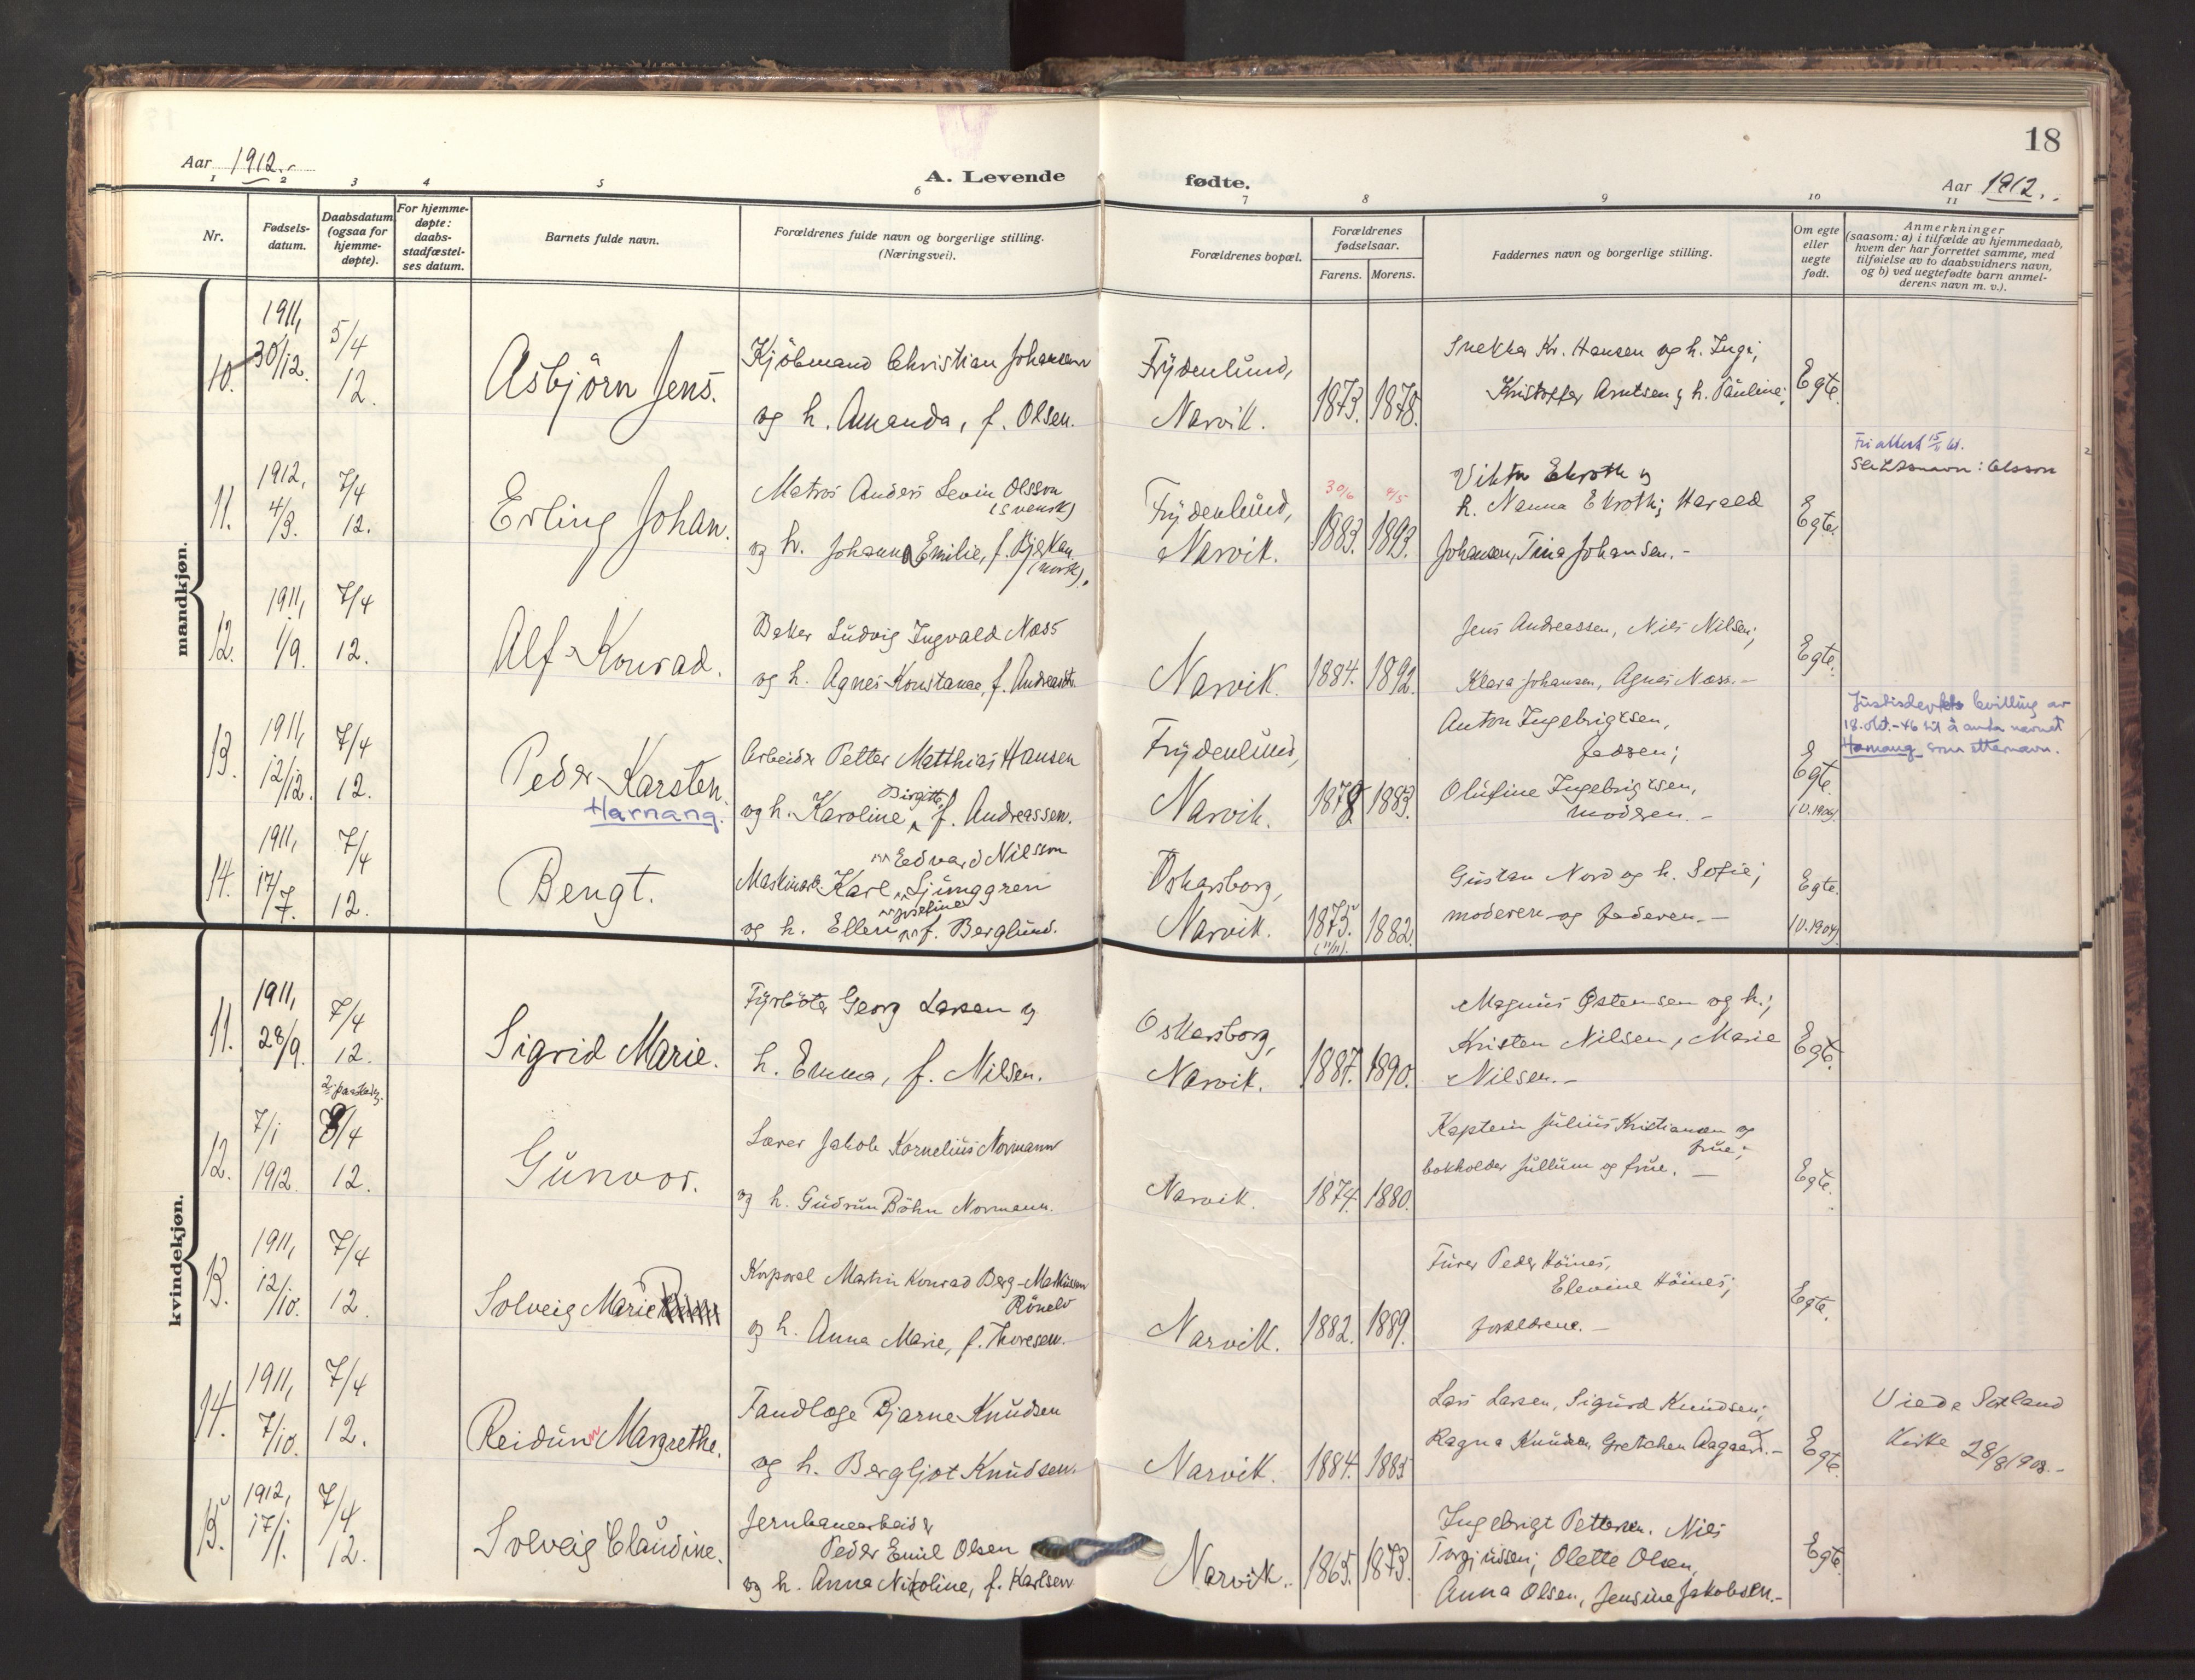 18
Aar 1912.
A. Levende fødte.
Aar 1912.
1 2 3 4 5 6 7 8 9 10 11
Nr.
Fødsels-
datum.
Daabsdatum
(ogsaa for
hjemme-
døpte).
For hjemme-
døpte:
daabs-
stadfæstel-
ses datum.
Barnets fulde navn.
Forældrenes fulde navn og borgerlige stilling.
(Næringsvei).
Forældrenes bopæl.
Forældrenes
fødselsaar.
Farens. Morens.
Faddernes navn og borgerlige stilling.
Om egte
eller
uegte
født.
Anmerkninger
(saasom: a) i tilfælde av hjemmedaab,
hvem der har forrettet samme, med
tilføielse av to daabsvidners navn,
og b) ved uegtefødte barn anmel-
derens navn m. v.).
mandkjøn.
10.
1911,
30/12.
5/4
12.
Asbjörn Jens.
Kjöbmand Christian Johansen
og h. Amanda, f. Olsen.
Frydenlund,
Narvik.
1873. 1878.
Snekker Kr. Hansen og h. Inga;
Kristoffer Arntsen & h. Pauline.
Egte.
11.
1912,
4/3.
7/4
12.
Erling Johan.
Matros Anders Levin Olsson
(svensk)
og h. Johanna Emilie, f. Bjerkan
(norsk).
Frydenlund,
Narvik.
30/6 4/5
1883. 1893.
Viktor Ekroth og
h. Nanna Ekroth; Harald
Johansen, Tina Johansen.-
Egte.
Fri attest 15/5 61.
Slektsnavn: Olsson
12.
1911,
1/9.
7/4
12.
Alf Konrad.
Baker Ludvig Ingvald Næss
og h. Agnes Konstanse, f. Andreassen.
Narvik.
1884. 1892.
Jens Andreassen, Nils Nilsen;
Klara Johansen, Agnes Næss.-
Egte.
13.
1911,
12/12.
7/4
12.
Peder Karsten.
Harnang.
Arbeider Petter Matthias Hansen
Birgitte
og h. Karoline, f. Andreassen.
Frydenlund,
Narvik.
1878 1883.
Anton Ingebrigtsen,
faderen;
Olufine Ingebrigtsen,
moderen.-
Egte.
(V. 1909).
Justisdep.ts bevilling av
18. okt.-46 til å anta navnet
Harnang som etternavn.
14.
1911,
17/7.
7/4
12.
Bengt.
Edvard Nilsson
Maskinarb. Karl Ljunggren
Josefine
og h. Ellen f. Berglund.
Oskarsborg,
Narvik.
1875. 1882.
(11/11).
Gustav Nord og h. Sofie;
moderen og faderen.-
Egte.
(V. 1904)
kvindekjøn.
11.
1911,
28/9.
7/4
12.
Sigrid Marie.
Fyrböter Georg Larsen og
h. Emma, f. Nilsen.
Oskarsborg,
Narvik.
1887. 1890.
Magnus Østensen og h.;
Kristen Nilsen, Marie
Nilsen.-
Egte.
12.
7/1
1912.
2. paaskedag.
8/4
12.
Gunvor.
Lærer Jakob Kornelius Normann
og h. Gudrun Böhn Normann.
Narvik.
1874. 1880.
Kaptein Julius Kristiansen og
frue;
bokholder Jullum og frue.-
Egte.
13.
1911,
12/10.
7/4
12.
Solveig Marie
Korporal Martin Konrad Berg-Markussen
Rönelv
og h. Anna Marie, f. Thoresen.
Narvik.
1882. 1889.
Furer Peder Höines,
Elevine Höines;
forældrene.-
Egte.
14.
1911,
7/10.
7/4
12.
Reidunn Margrethe.
Tandlæge Bjarne Knudsen
og h. Bergljot Knudsen.
Narvik.
1884. 1885
Lars Larsen, Sigurd Knudsen;
Ragna Knudsen, Gretchen Aagaard.-
Egte.
Viede Sortland
Kirke 28/8 1908.-
15.
1912,
17/1.
7/4
12.
Solveig Claudine.
Jernbanearbeider
Peder Emil Olsen
og h. Anna Nikoline, f. Karlsen
Narvik.
1865. 1873.
Ingebrigt Pettersen. Nils
Torgjussen; Olette Olsen,
Anna Olsen, Jensine Jakobsen.-
Egte.